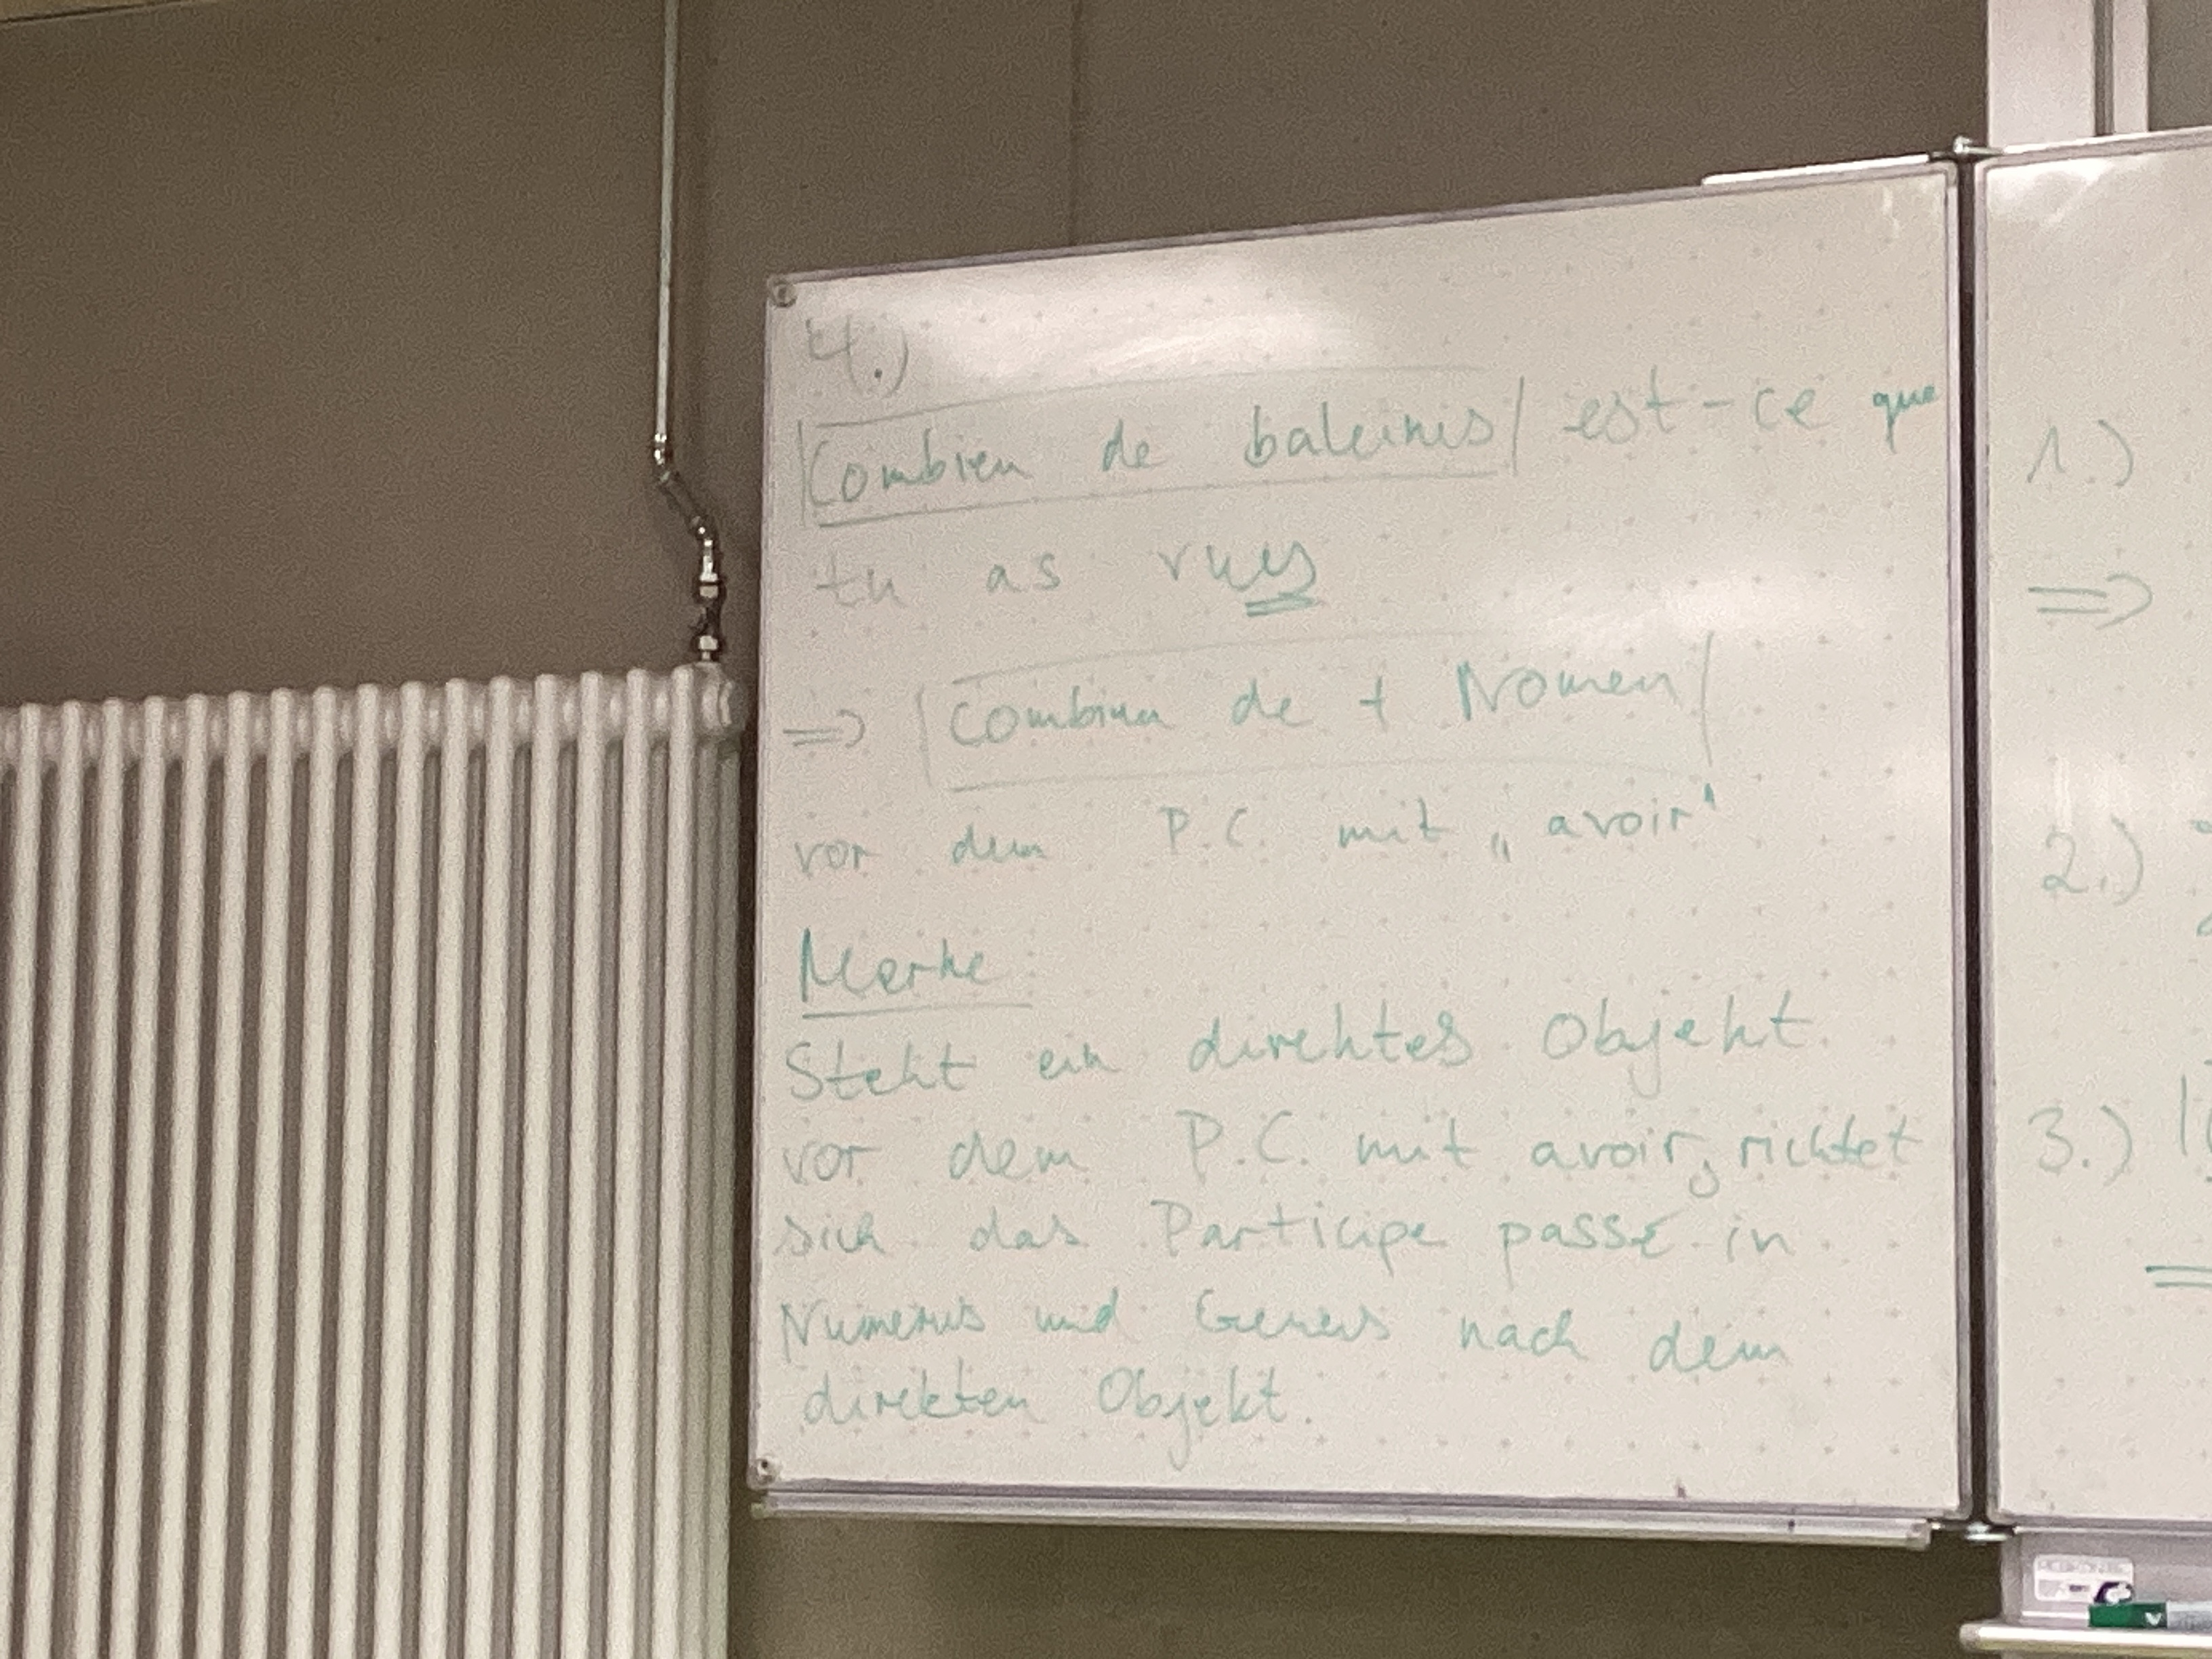 4.)
Combien de baleinis est-ce que
tu as vues
⇒ Combien de + Nomen
vor dem P.C. mit „avoir"
Merke
Steht ein direktes Objekt
vor dem P.C. mit avoir, richtet
sich das Participe passé in
Numerus und Genus nach dem
direkten Objekt.
1.)
⇒
2.)
3.)